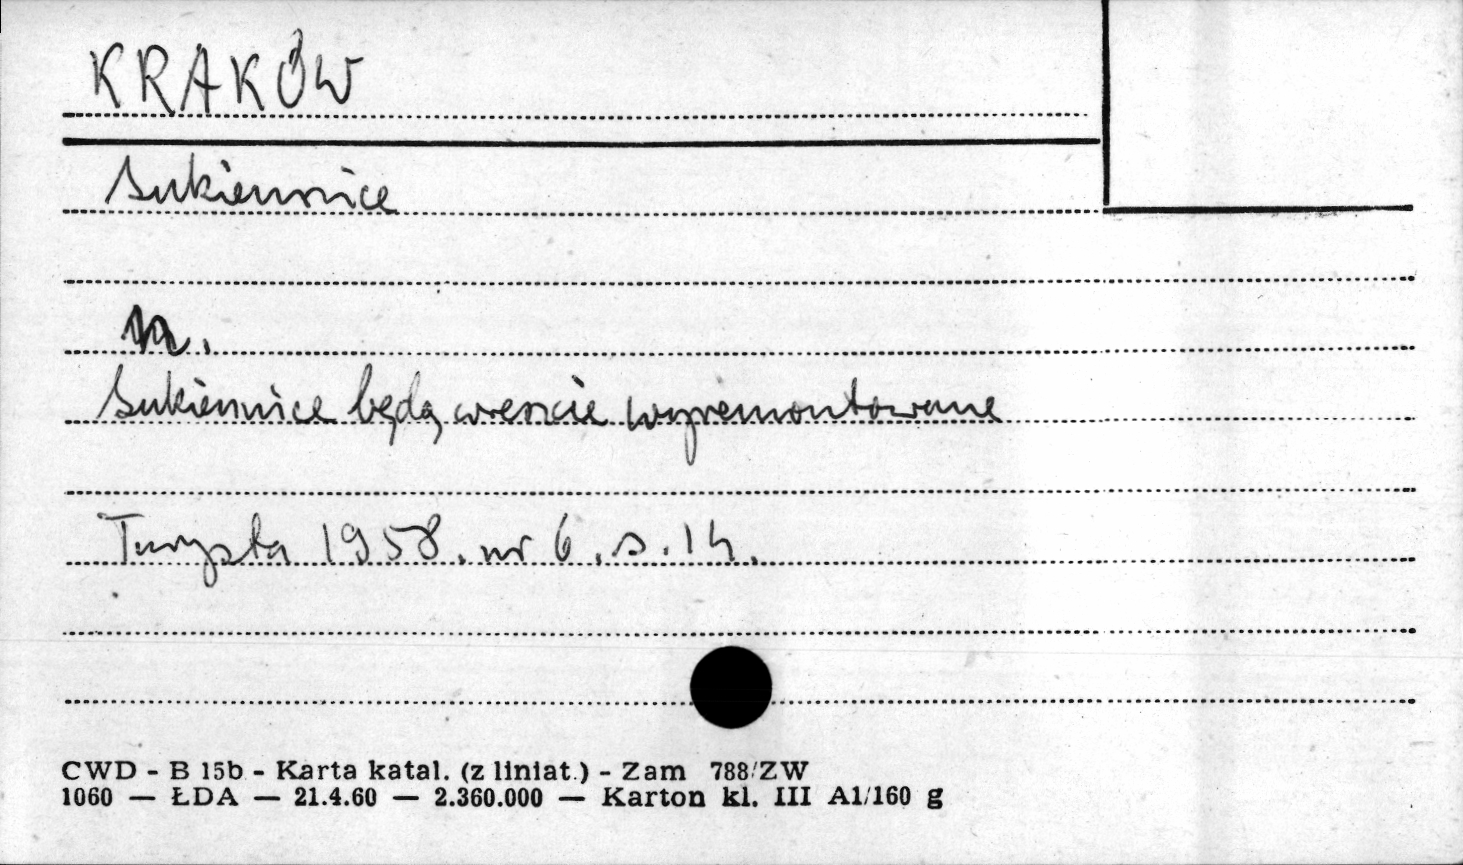 KRAKÓW
Sukiennice
n.
Sukiennice będą wreszcie wyremontowane
Turysta 1958. nr 6. s. 14.
CWD - B 15b - Karta katal. (z liniat.) - Zam 788/ZW
1060 — ŁDA — 21.4.60 — 2.360.000 — Karton kl. III A1/160 g